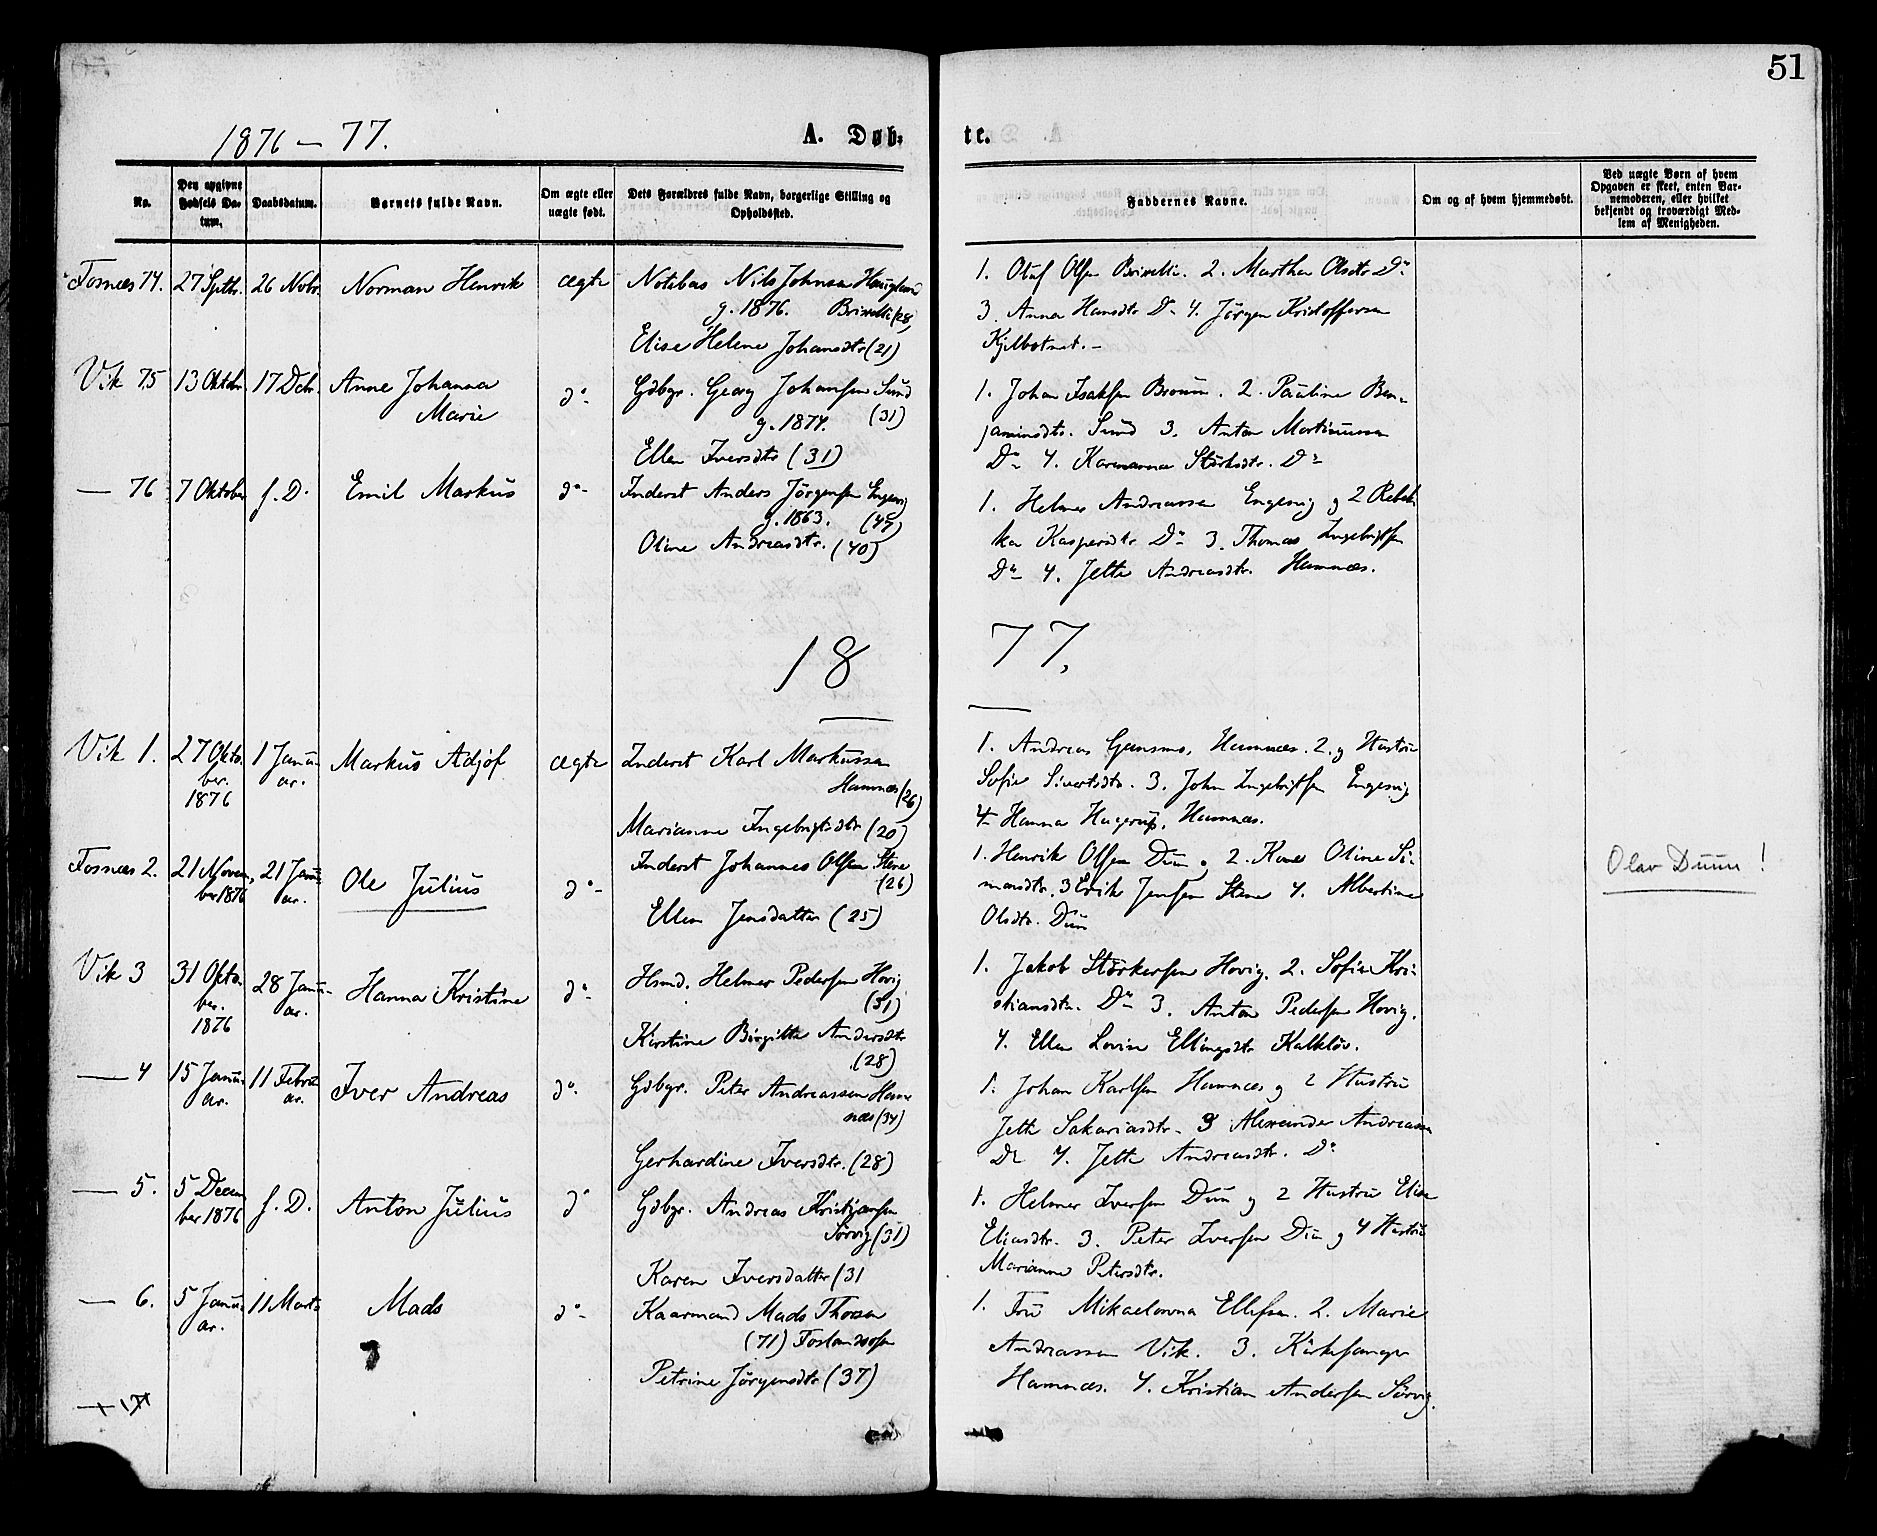 51
1876 – 77.
A. Døb-
te.
No.
Den opgivne Fødsels Da-tum.
Daabsdatum.
Barnets fulde Navn.
Om ægte eller uægte født.
Dets Forældres fulde Navn, borgerlige Stilling og Opholdssted.
Faddernes Navne.
Om og af hvem hjemmedøbt.
Ved uægte Børn af hvem Opgaven er skeet, enten Bar-nemoderen, eller hvilket bekjendt og troværdigt Med-lem af Menigheden.
Fosnæs 74. 27 Septbr. 26 Novbr. Norman Henrik ægte Nils Johnsen
g. 1876. (28)
Elise Helene Johansdtr (21)
1. Oluf Olsen 2. Marthea Olsdtr Do
3. Anna Hansdtr Do 4. Jørgen Kristoffersen
Vik 75 13 Oktbr. 17 Dcbr. Anne Johanna
Marie
do Gdbgr. Georg Johansen Sund
g. 1874. (31)
Ellen Iversdtr (31)
1. Johan Isaksen 2. Pauline Ben-
jaminsdtr. Sund 3. Anton Martinussen
Do 4. Størksdtr. Do
— 76 7 Oktober f. D. Emil Markus do Inderst Anders Jørgensen Engesvig
g. 1863.
Oline Andreasdtr. (40)
1. Helmer Andreassen Engesvig og 2 Rebek-
ka Kaspersdtr Do 3. Thomas Ingebrigtsen
Do 4. Jette Andreasdtr. Hamnæs.
18 77,
Vik 1. 27 Okto-
ber.
1876
1 Janu-
ar.
Markus Adjøf ægte Inderst Karl Markussen
Hamnæs (26)
Marianne Ingebrigtsdtr (20)
1. Andreas Gansmo, Hamnæs. 2. og Hustru
Sofie Sivertsdtr. 3. John Ingebrigtsen Engesvig
4 Hanna Hagerup, Hamnæs.
Fosnæs 2. 21 Novem-
ber 1876
21 Janu-
ar.
Ole Julius do Inderst Johannes Olsen Stene
(26)
Ellen Jensdatter (25)
1. Henrik Olsen Dun og 2. Kone Oline Si-
monsdtr. 3 Erik Jensen Stene 4. Albertine
Olsdtr. Dun
Olav Duun!
Vik 3 31 Okto-
ber.
1876
28 Janu-
ar.
Hanna Kristine do Hsmd. Helmer Pedersen Hovig
(31)
Kirstine Birgitte Andersdtr
(28)
1. Jakob Størkersen Hovig. 2. Sofie Kri-
stiansdtr. Do 3. Anton Pedersen Hovig.
4. Ellen Lovise Ellingsdtr Kalkløv.
— 4 15 Janu-
ar.
11 Febru-
ar.
Iver Andreas do Gdbgr. Peter Andreassen Ham-
næs (34)
Gerhardine Iversdtr. (28)
1. Johan Karlsen Hamnæs og 2 Hustru
Jette Sakariasdtr. 3 Alexander Andreassen
Do 4. Jette Andreasdtr. Do
— 5. 5 Decem-
ber 1876
f. D. Anton Julius do Gdbgr. Andreas Kristjansen
Sørvig (31)
Karen Iversdatter (31
1. Helmer Iversen Dun og 2 Hustru Elise
Eliasdtr. 3. Peter Iversen Dun og 4 Hustru
Marianne Petersdtr.
— 6. 5 Janu-
ar.
11 Marts Mads do Kaarmand Mads Thorsen
(71) Foslandsosen
Petrine Jørgensdtr (37)
1. Fru Mikaelovna Ellefsen. 2. Marie
Andreassen Vik. 3. Kirkesanger
Hamnæs. 4. Kristian Andersen Sørvig.